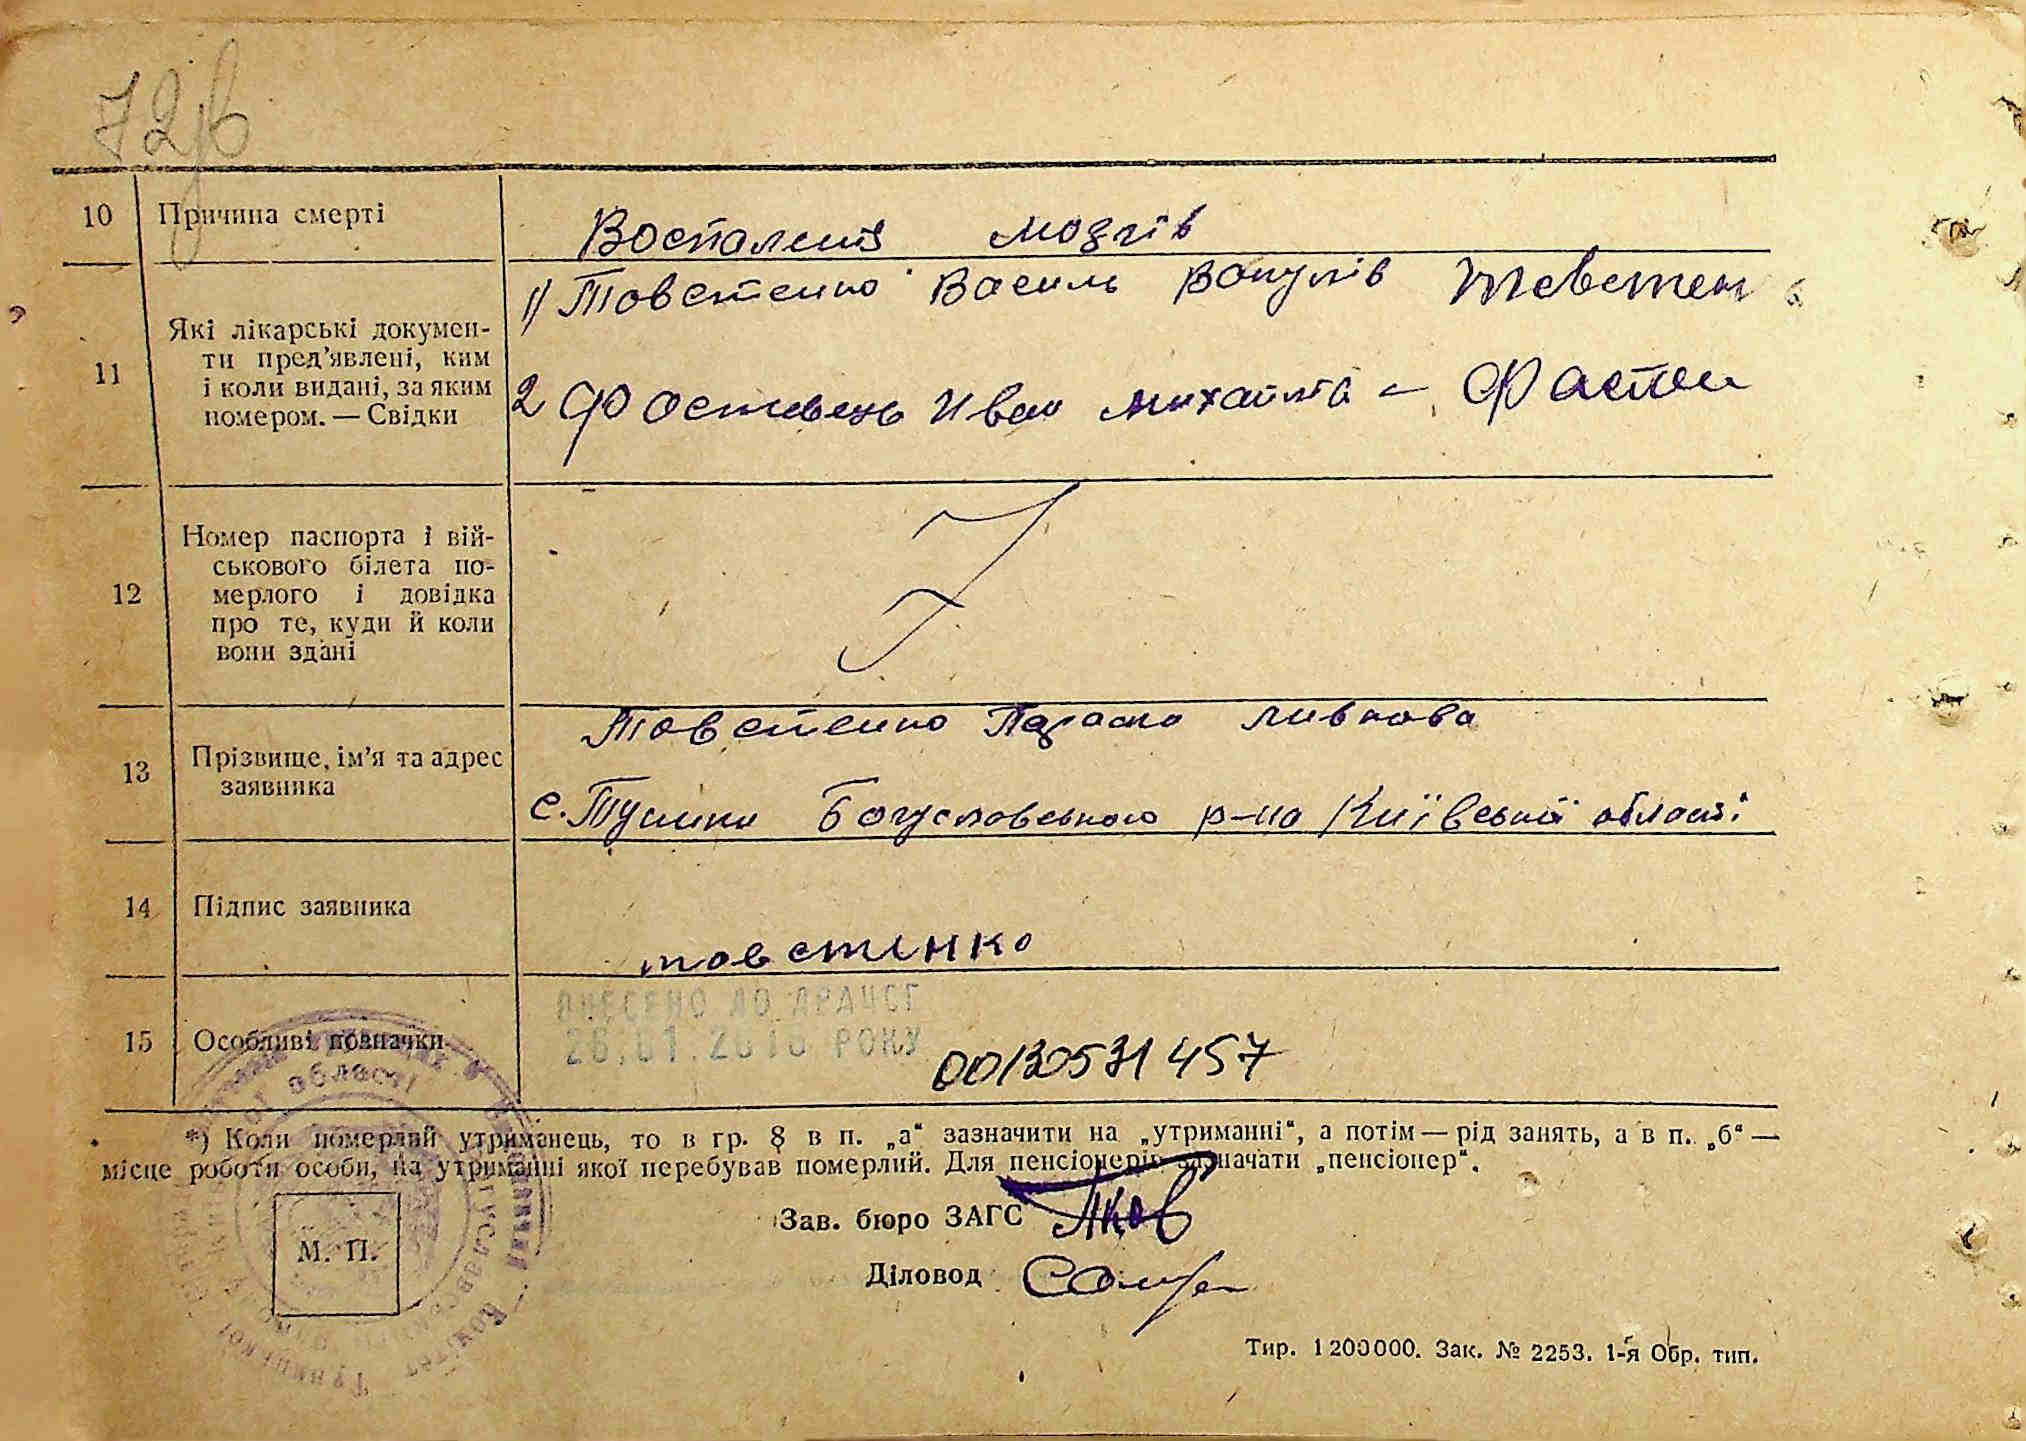 72
10 Причина смерті
Воспаленя мозгів
11 Які лікарські докумен-
ти пред’явлені, ким
і коли видані, за яким
номером. — Свідки
1) Товстенко Василь Вакулів Товстен
2 Фостовець Иван Михайлів - Фастов
12 Номер паспорта і вій-
ськового білета по-
мерлого і довідка
про те, куди й коли
вони здані
13 Прізвище, ім’я та адрес
заявника
Товстенко Параска
с. Тушки Богуславського р-на Київської області
14 Підпис заявника
товстенко
15 Особливі позначки
ВНЕСЕНО ДО ДРАЦСГ
РОКУ
00130531457
*) Коли померлий утриманець, то в гр. 8 в п. „а“ зазначити на „утриманні“, а потім — рід занять, а в п. „б“ —
місце роботи особи, на утриманні якої перебував померлий. Для пенсіонерів зазначати „пенсіонер“.
Зав. бюро ЗАГС
Діловод
М. П.
області
Тир. 1200000. Зак. № 2253. 1-я Обр. тип.